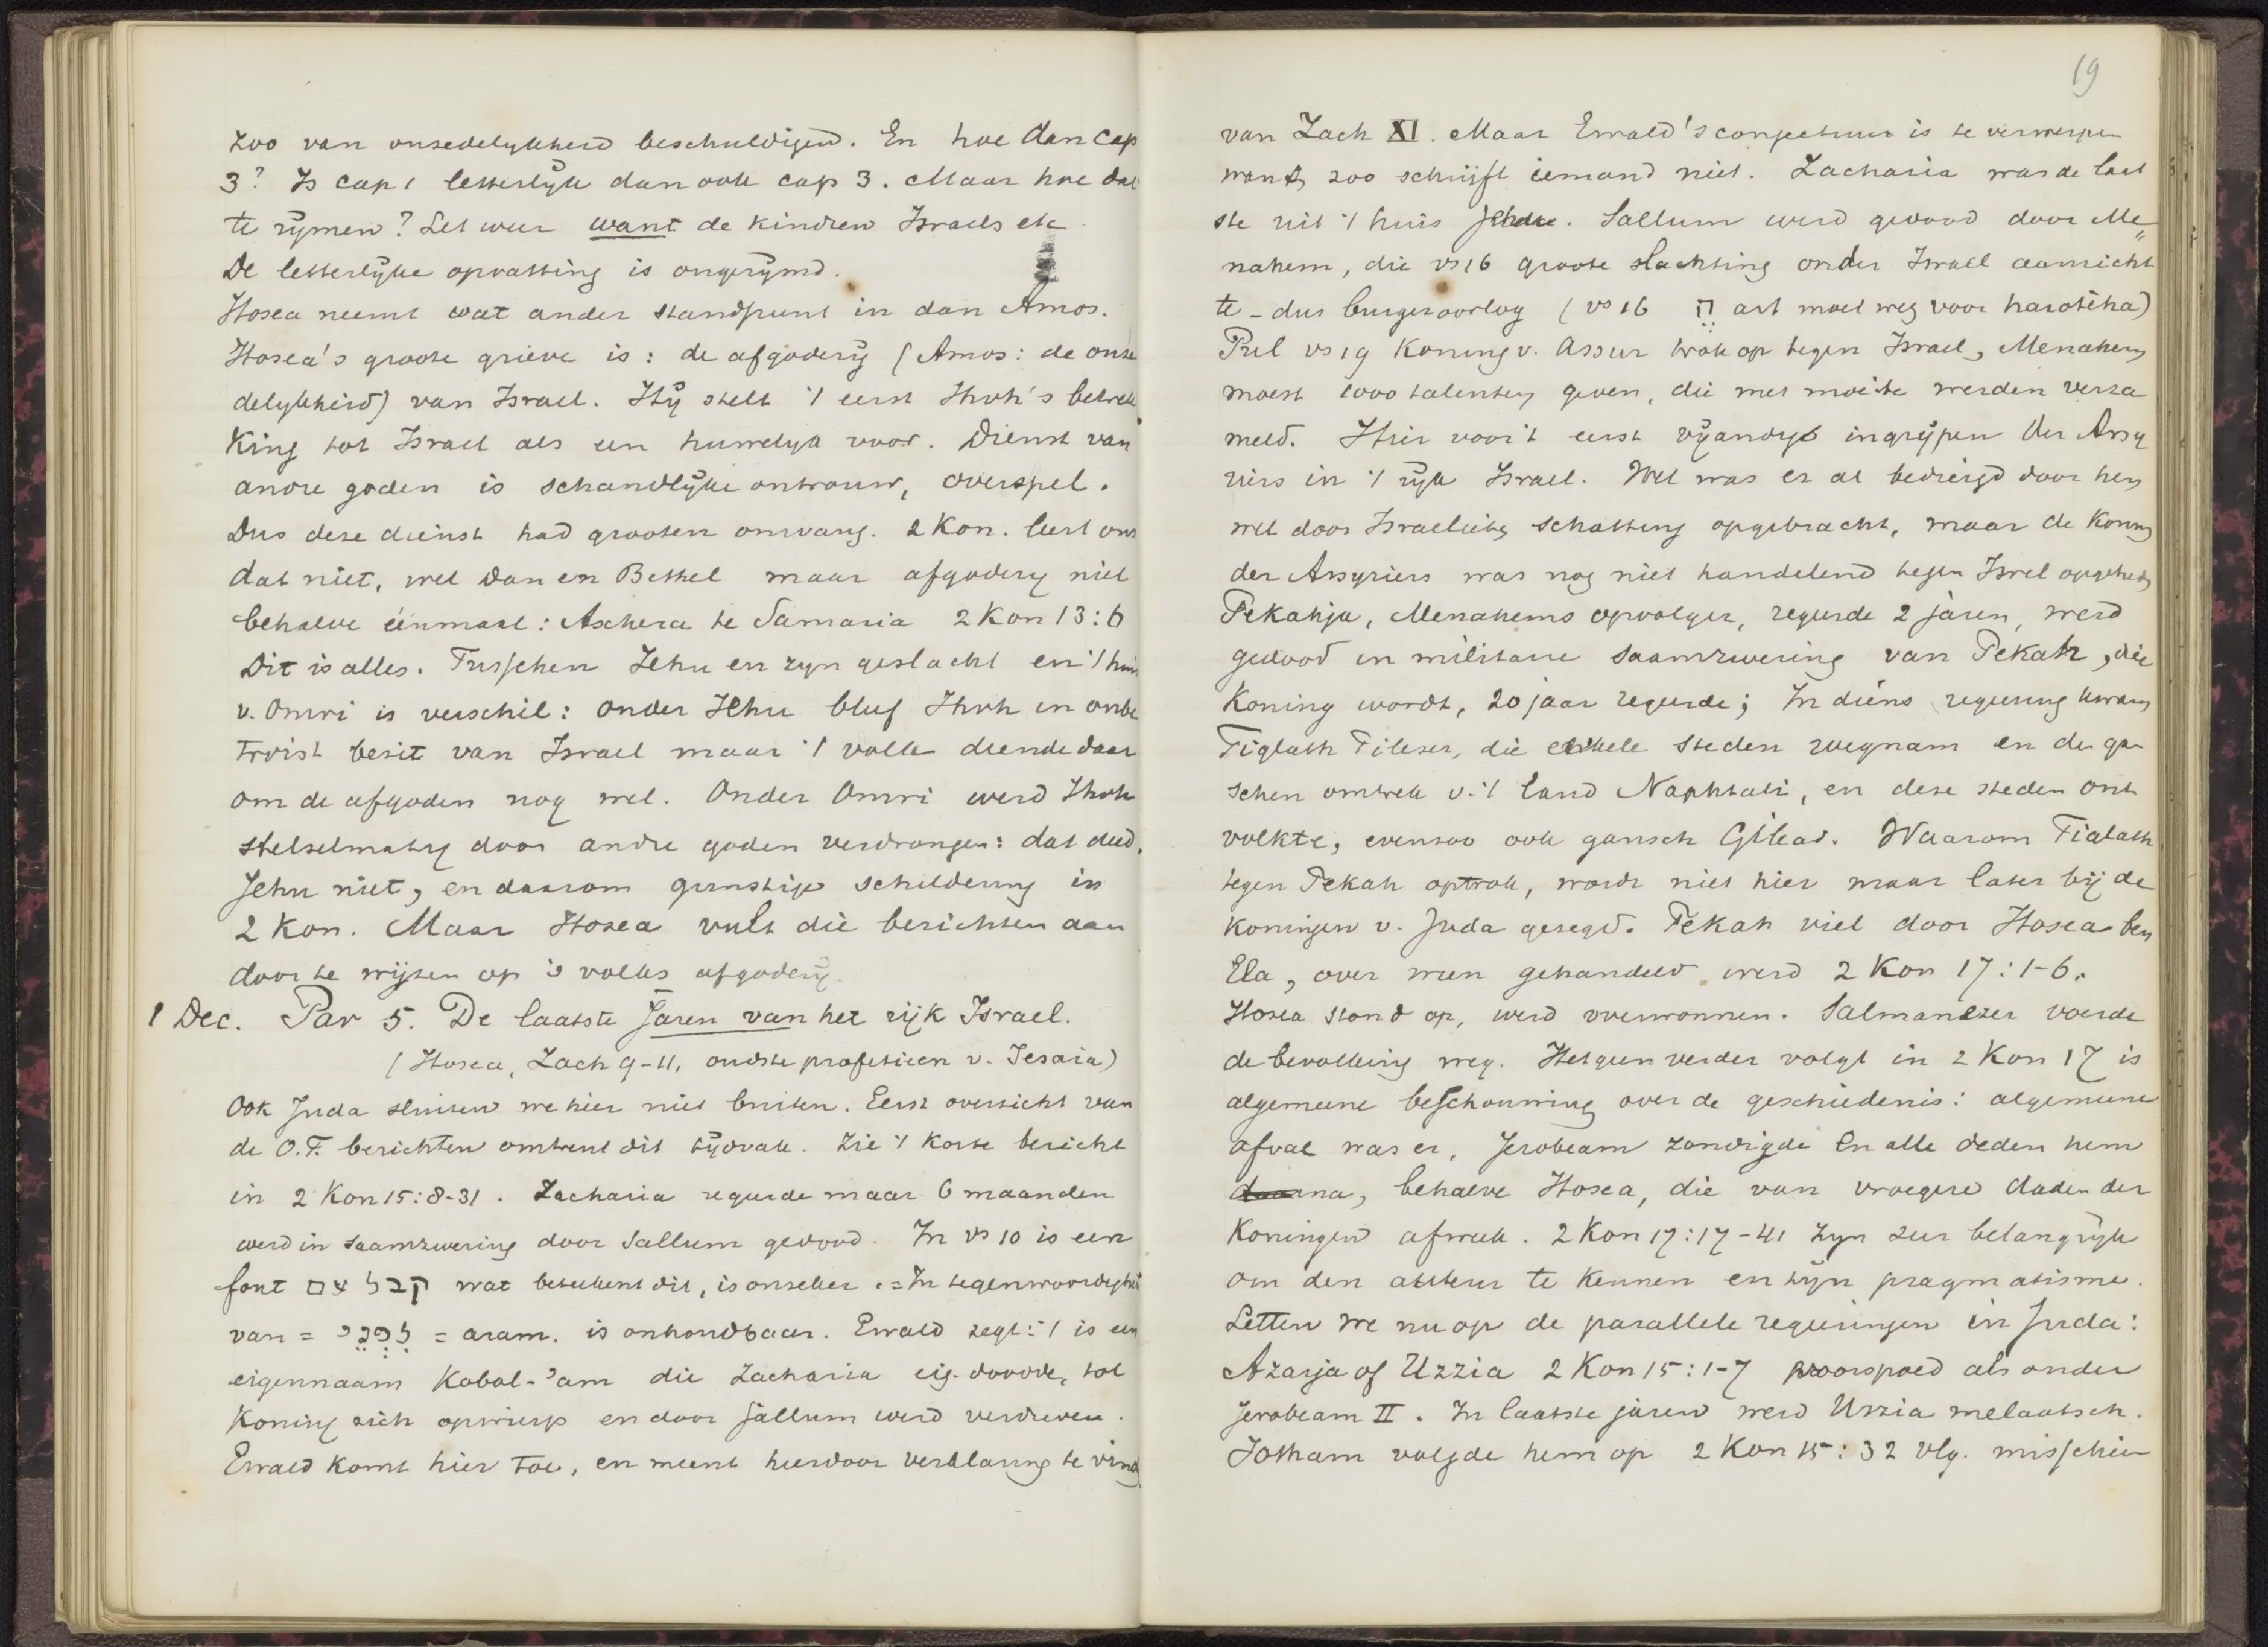 zoo van onzedelykheid beschuldigend. En hoe dan Cap
3? Is cap 1 letterlyk dan ook cap 3. Maar hoe dat
te rymen? Let wer want de kindren Israels etc
De letterlyke opvatting is ongerymd.
Hosea neemt wat ander standpunt in dan Amos.
Hosea's groote grieve is: de afgodery (Amos: de onze
delykheid) van Israel. Hy stelt 't eerst Jhvh's betrek
King tot Israel als een huwelyk voor. Dienst van
andre goden is schandlyke ontrouw, overspel.
Dus deze dienst had grooten omvang. 2 Kon. leert ons
dat niet, wel Dan en Bethel maar afgodery niet
behalve éénmaal: Aschera te Samaria 2 Kon 13:6
Dit is alles. Tusschen Jehu en zyn geslacht en 't huis
v. Omri is verschil: onder Jehu bleef Jhvh in onbe
twist bezit van Israel maar 't volk diende daar
om de afgoden nog wel. Onder Omri werd Jhvh
stelselmatig door andre goden verdrongen: dat deed
Jehu niet, en daarom gunstige schildering in
2 Kon. Maar Hosea vult die berichten aan
door te wijzen op 's volks afgodery.
1 Dec. Par 5. De laatste Jaren van het rijk Israel.
(Hosea, Zach 9-11, oudste profetieen v. Jesaia)
Ook Juda sluiten we hier niet buiten. Eerst overzicht van
de O.T. berichten omtrent dit tydvak. Zie 't Korte bericht
in 2 Kon 15:8-31. Zacharia regeerde maar 6 maanden
werd in saamzwering door Sallum gedood. In vs 10 is een
font קבל עם wat beteekent dit, is onzeker. = In tegenwoordigheid
van = = aram. is onhoudbaar. Ewald zegt: 't is een
eigennaam Kobol-'am die Zacharia eig. doodde, tot
Koning zich opwierp en door Sallum werd verdreven.
Ewald komt hier toe, en meent hierdoor verklaring te vind
19
van Zach XI. Maar Ewald's conjectuur is te verwerpen
want zoo schrijft iemand niet. Zacharia was de laat
ste uit 't huis Jehu. Sallum werd gedood door Me
nahem, die vs 16 groote slachting onder Israel aanricht
te - dus burgeroorlog (vs 16 ה art moet weg voor harotêha)
Pul vs 19 Koning v. Assur trok op tegen Israel, Menahem
moest 1000 talenten geven, die met moeite werden verza
meld. Hier voor 't eerst vyandig ingrypen der Assy
riers in 't ryk Israel. Wel was er al bedreigd door hen
wel door Israelieten schatting opgebracht, maar de Koning
der Assyriers was nog niet handelend tegen Isrel opgetreden
Pekahja, Menahems opvolger, regeerde 2 jaren, werd
gedood in militaire saamzwering van Pekah, die
Koning wordt, 20 jaar regeerde; In diens regeering kwam
Tiglath Pilezer, die enkele steden wegnam en den gan
schen omtrek v. 't land Naphtali, en deze steden ont
volkte, evenzoo ook gansch Gilead. Waarom Tiglath
tegen Pekah optrok, wordt niet hier maar later bij de
Koningen v. Juda gezegd. Pekah viel door Hosea ben
Ela, over wien gehandeld werd 2 Kon 17:1-6.
Hosea stond op, werd overwonnen. Salmanezer voerde
de bevolking weg. Hetgeen verder volgt in 2 Kon 17 is
algemeene beschouwing over de geschiedenis: algemeene
afval was er, Jerobeam zondigde En alle deden hem
daarna, behalve Hosea, die van vroegere daden der
Koningen afweek. 2 Kon 17:17-41 zyn zeer belangryk
om den auteur te Kennen en zijn pragmatisme.
Letten we nu op de parallele regeeringen in Juda:
Azarja of Uzzia 2 Kon 15:1-7 voorspoed als onder
Jerobeam II. In laatste jaren werd Uzzia melaatsch.
Jotham volgde hem op 2 Kon 15:32 vlg. misschien